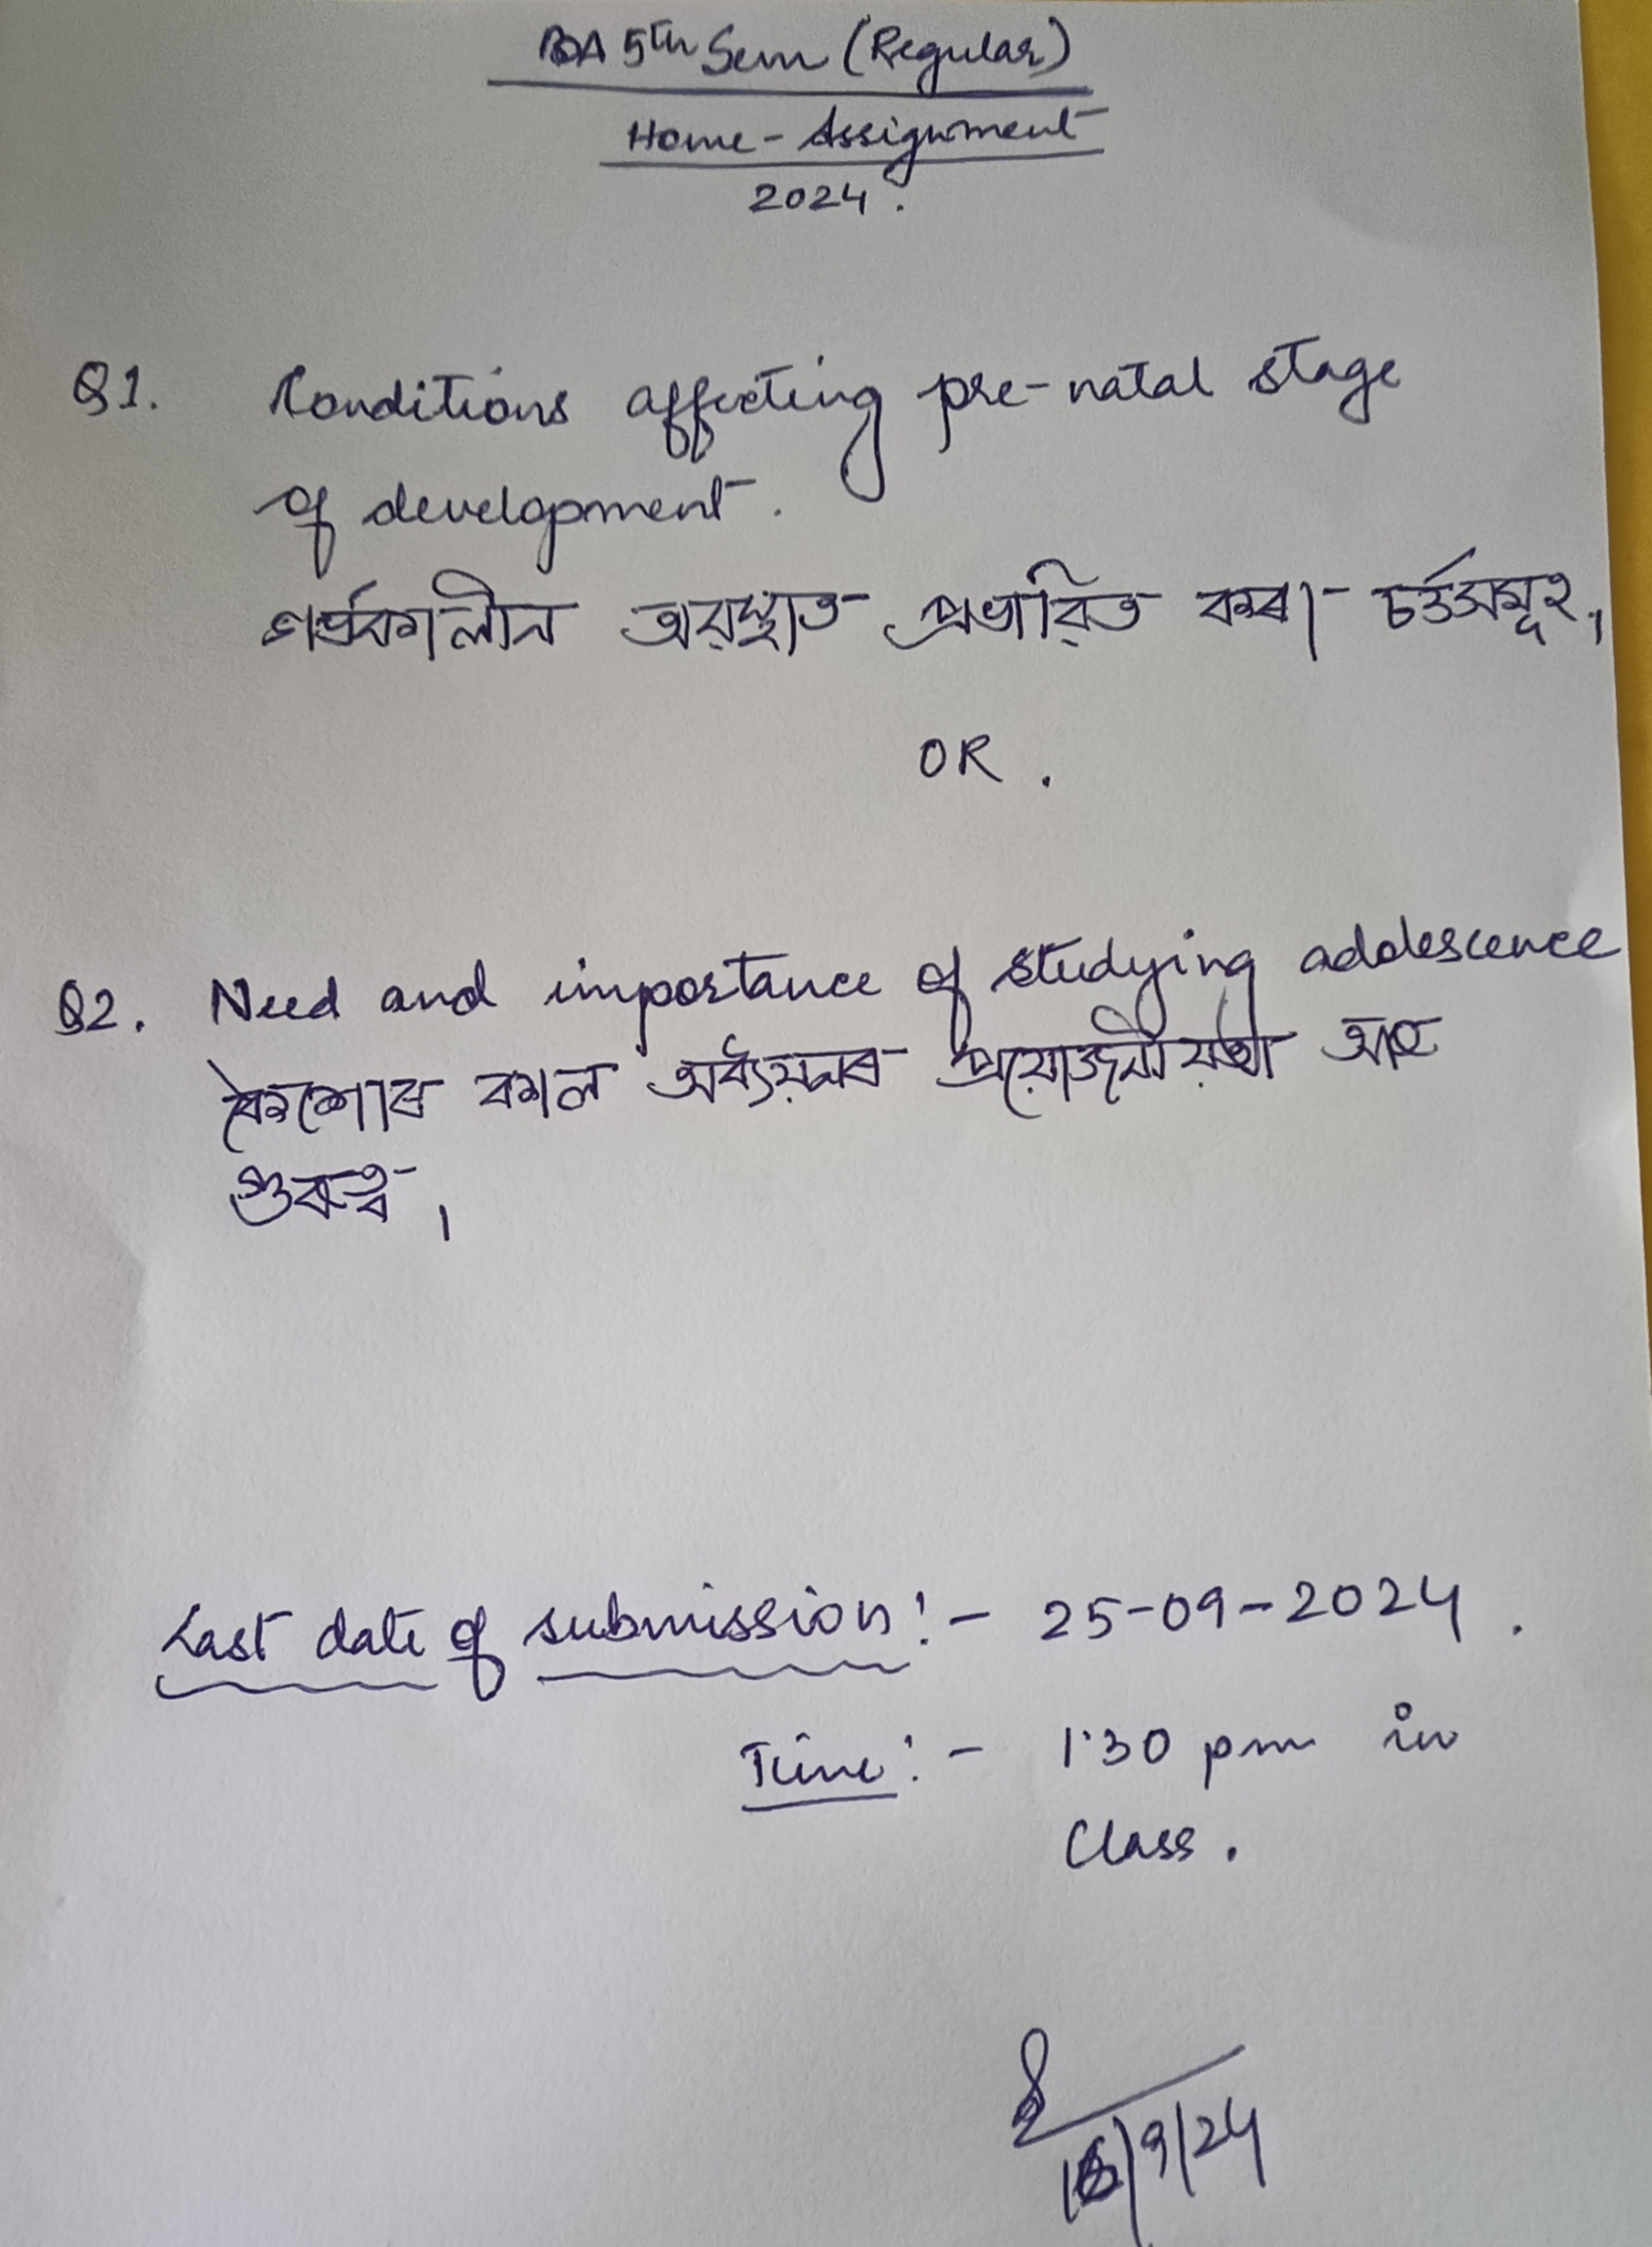 BA 5th Sem (Regular)
Home - Assignment
2024.
Q1. Conditions affecting pre-natal stage
of development.
গৰ্ভকালীন অৱস্থাত প্ৰভাৱিত কৰা চৰ্তসমূহ।
OR.
Q2. Need and importance of studying adolescence
কৈশোৰ কাল অধ্যয়নৰ প্ৰয়োজনীয়তা আৰু
গুৰুত্ব।
Last date of submission:- 25-09-2024.
Time:- 1:30 pm in
Class.
/9/24